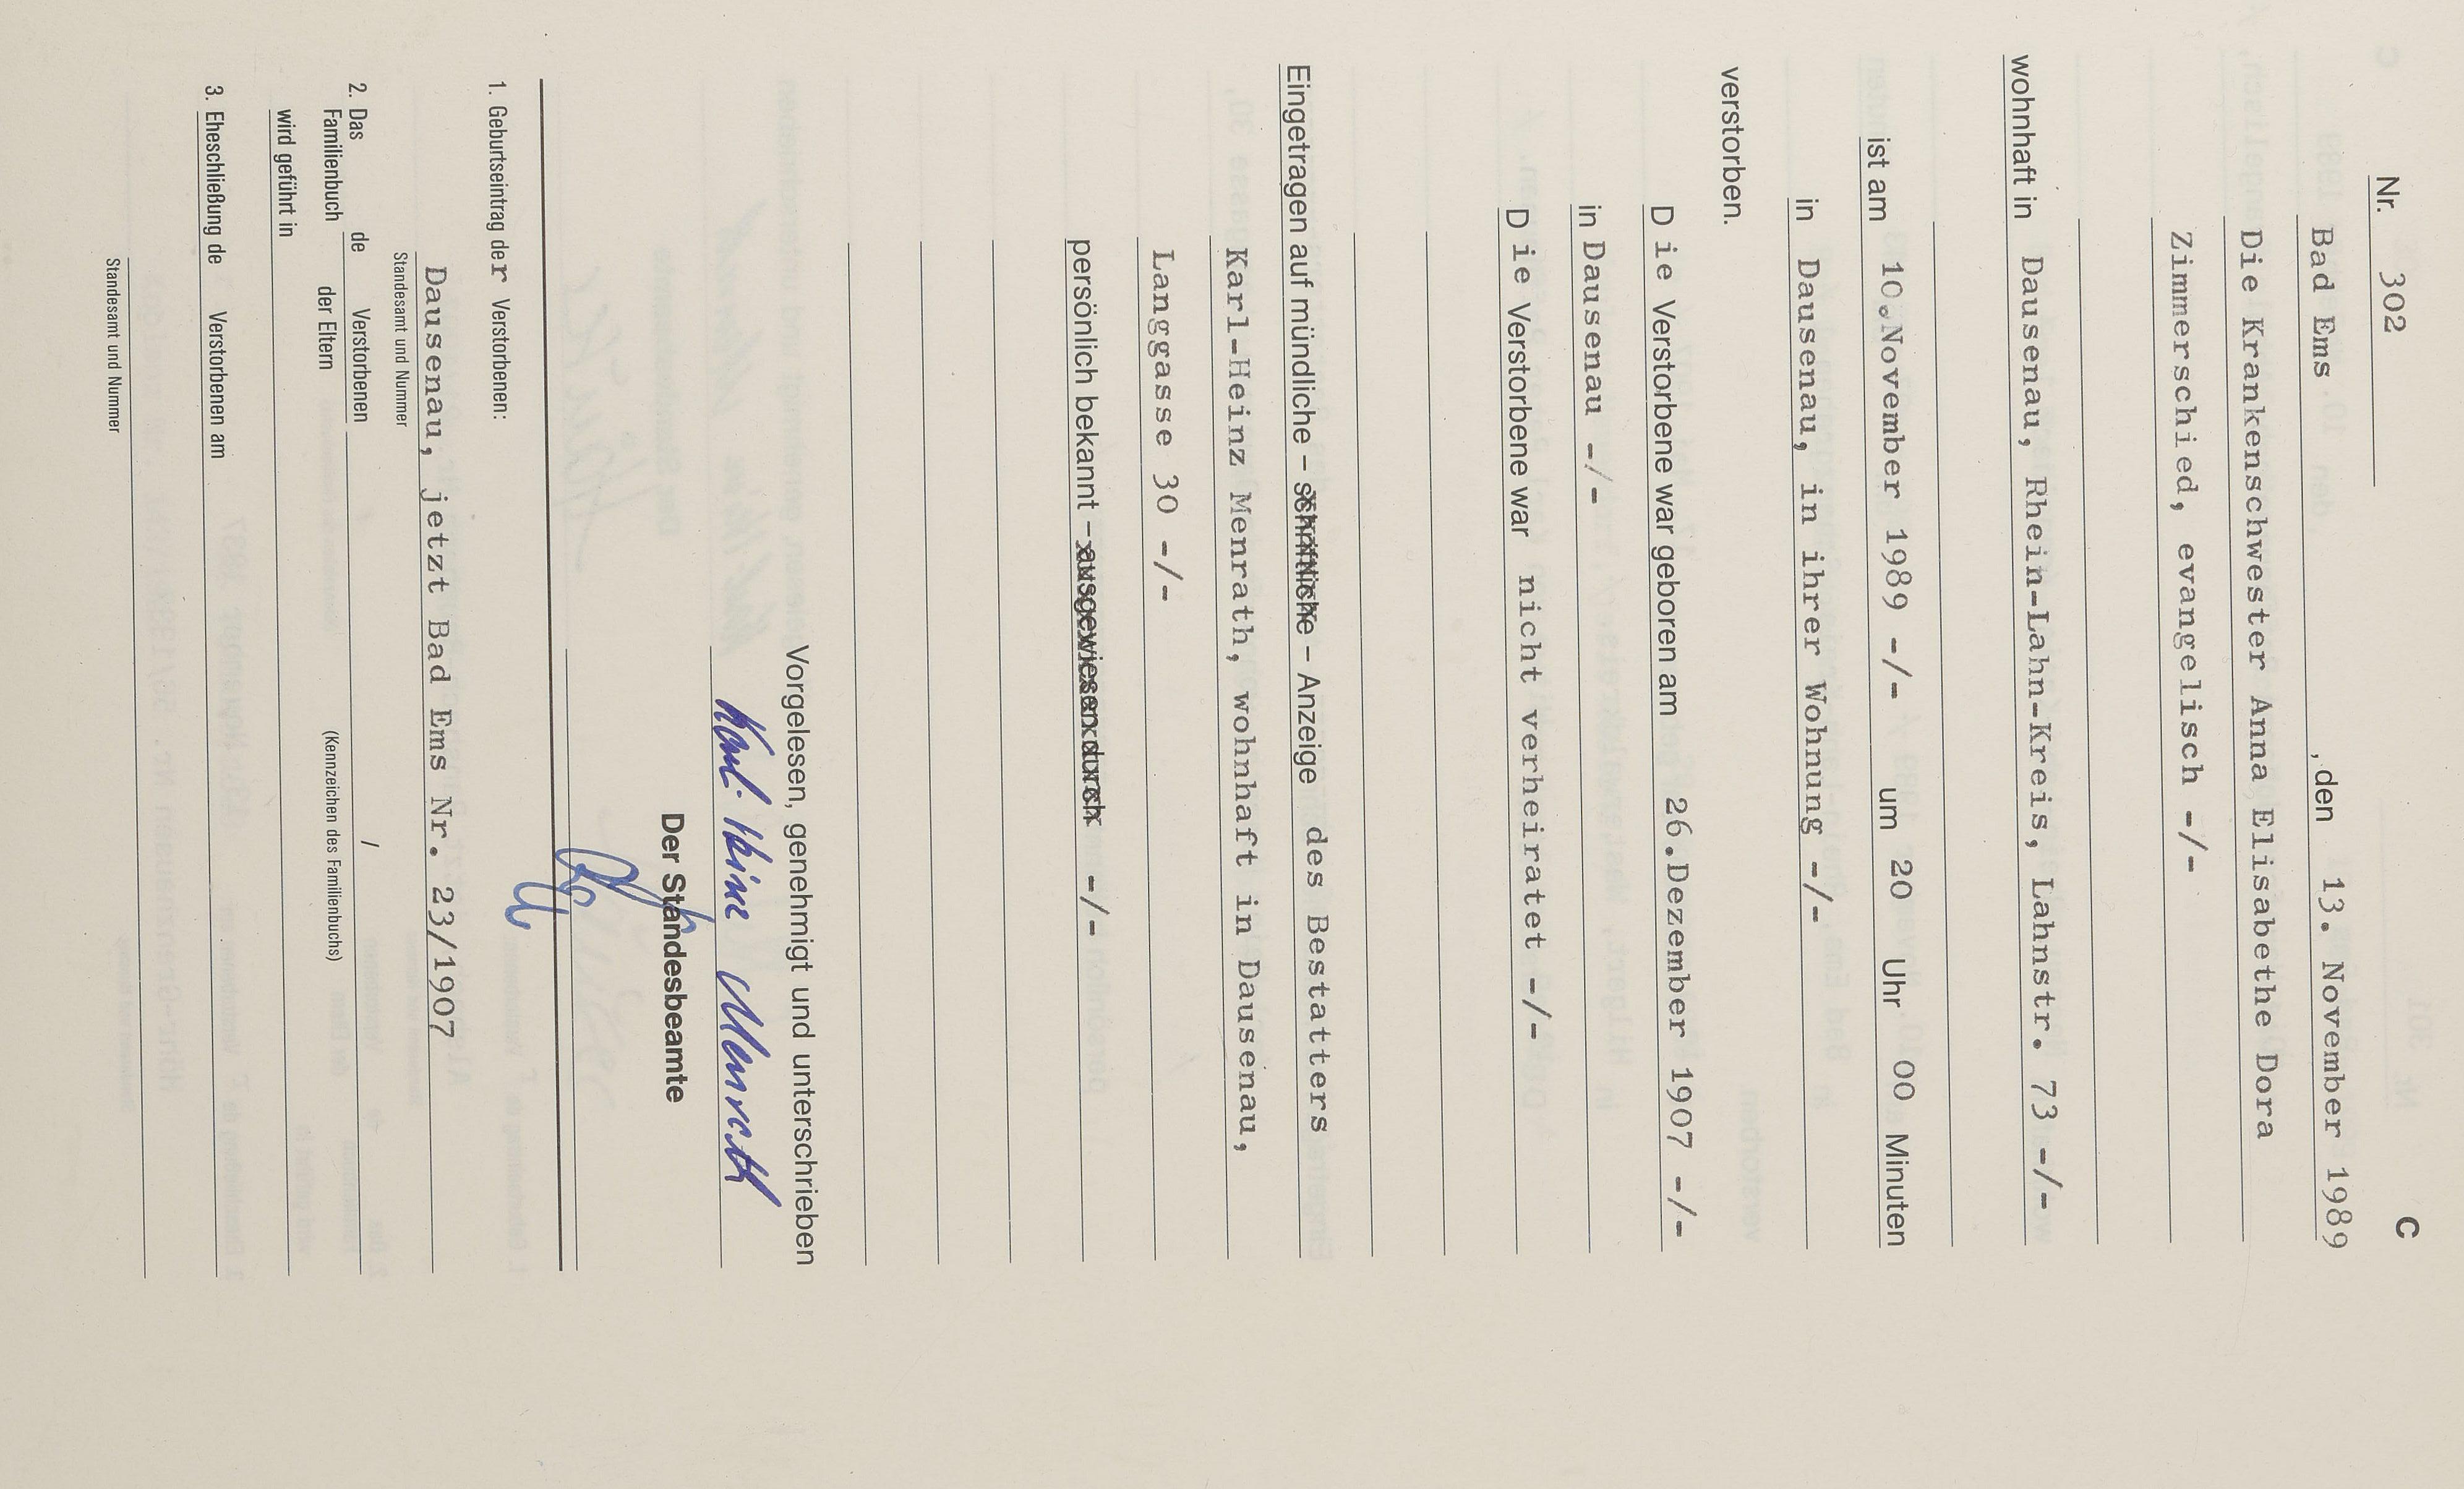 C
Nr. 302
Bad Ems, den 13. November 1989
Die Krankenschwester Anna Elisabethe Dora
Zimmerschied, evangelisch -/-
wohnhaft in Dausenau, Rhein-Lahn-Kreis, Lahnstr. 73 -/-
ist am 10.November 1989 -/- um 20 Uhr 00 Minuten
in Dausenau, in ihrer Wohnung -/-
verstorben.
Die Verstorbene war geboren am 26.Dezember 1907 -/-
in Dausenau -/-
Die Verstorbene war nicht verheiratet -/-
Eingetragen auf mündliche – schriftliche – Anzeige des Bestatters
Karl-Heinz Menrath, wohnhaft in Dausenau,
Langgasse 30 -/-
persönlich bekannt – ausgewiesen durch -/-
Vorgelesen, genehmigt und unterschrieben
Karl-Heinz Menrath
Der Standesbeamte
1. Geburtseintrag der Verstorbenen:
Dausenau, jetzt Bad Ems Nr. 23/1907
Standesamt und Nummer
2. Das Familienbuch de Verstorbenen /
der Eltern (Kennzeichen des Familienbuchs)
wird geführt in
3. Eheschließung de Verstorbenen am
Standesamt und Nummer